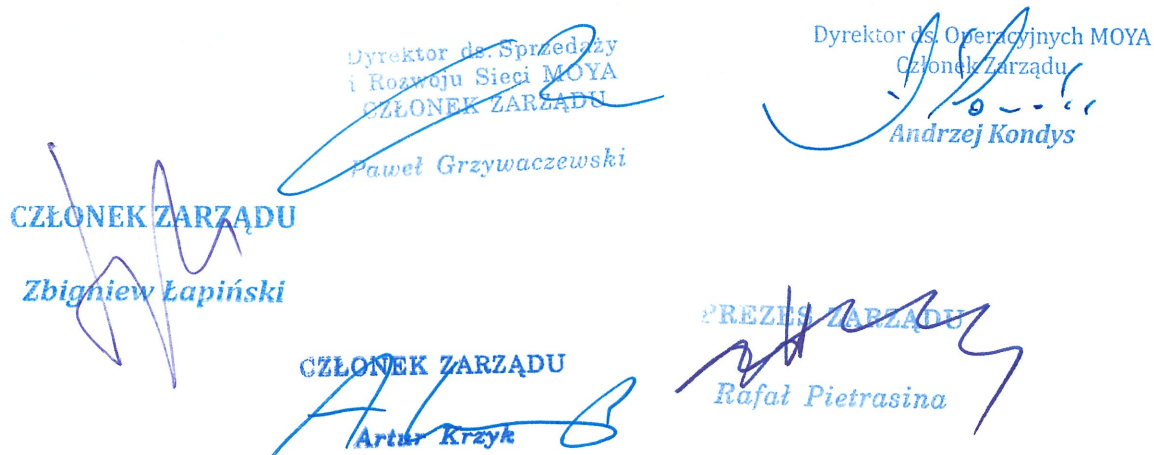 Dyrektor ds. Sprzedaży
i Rozwoju Sieci MOYA
CZŁONEK ZARZĄDU
Paweł Grzywaczewski
Dyrektor ds. Operacyjnych MOYA
Członek Zarządu
Andrzej Kondys
CZŁONEK ZARZĄDU
Zbigniew Łapiński
CZŁONEK ZARZĄDU
Artur Krzyk
PREZES ZARZĄDU
Rafał Pietrasina